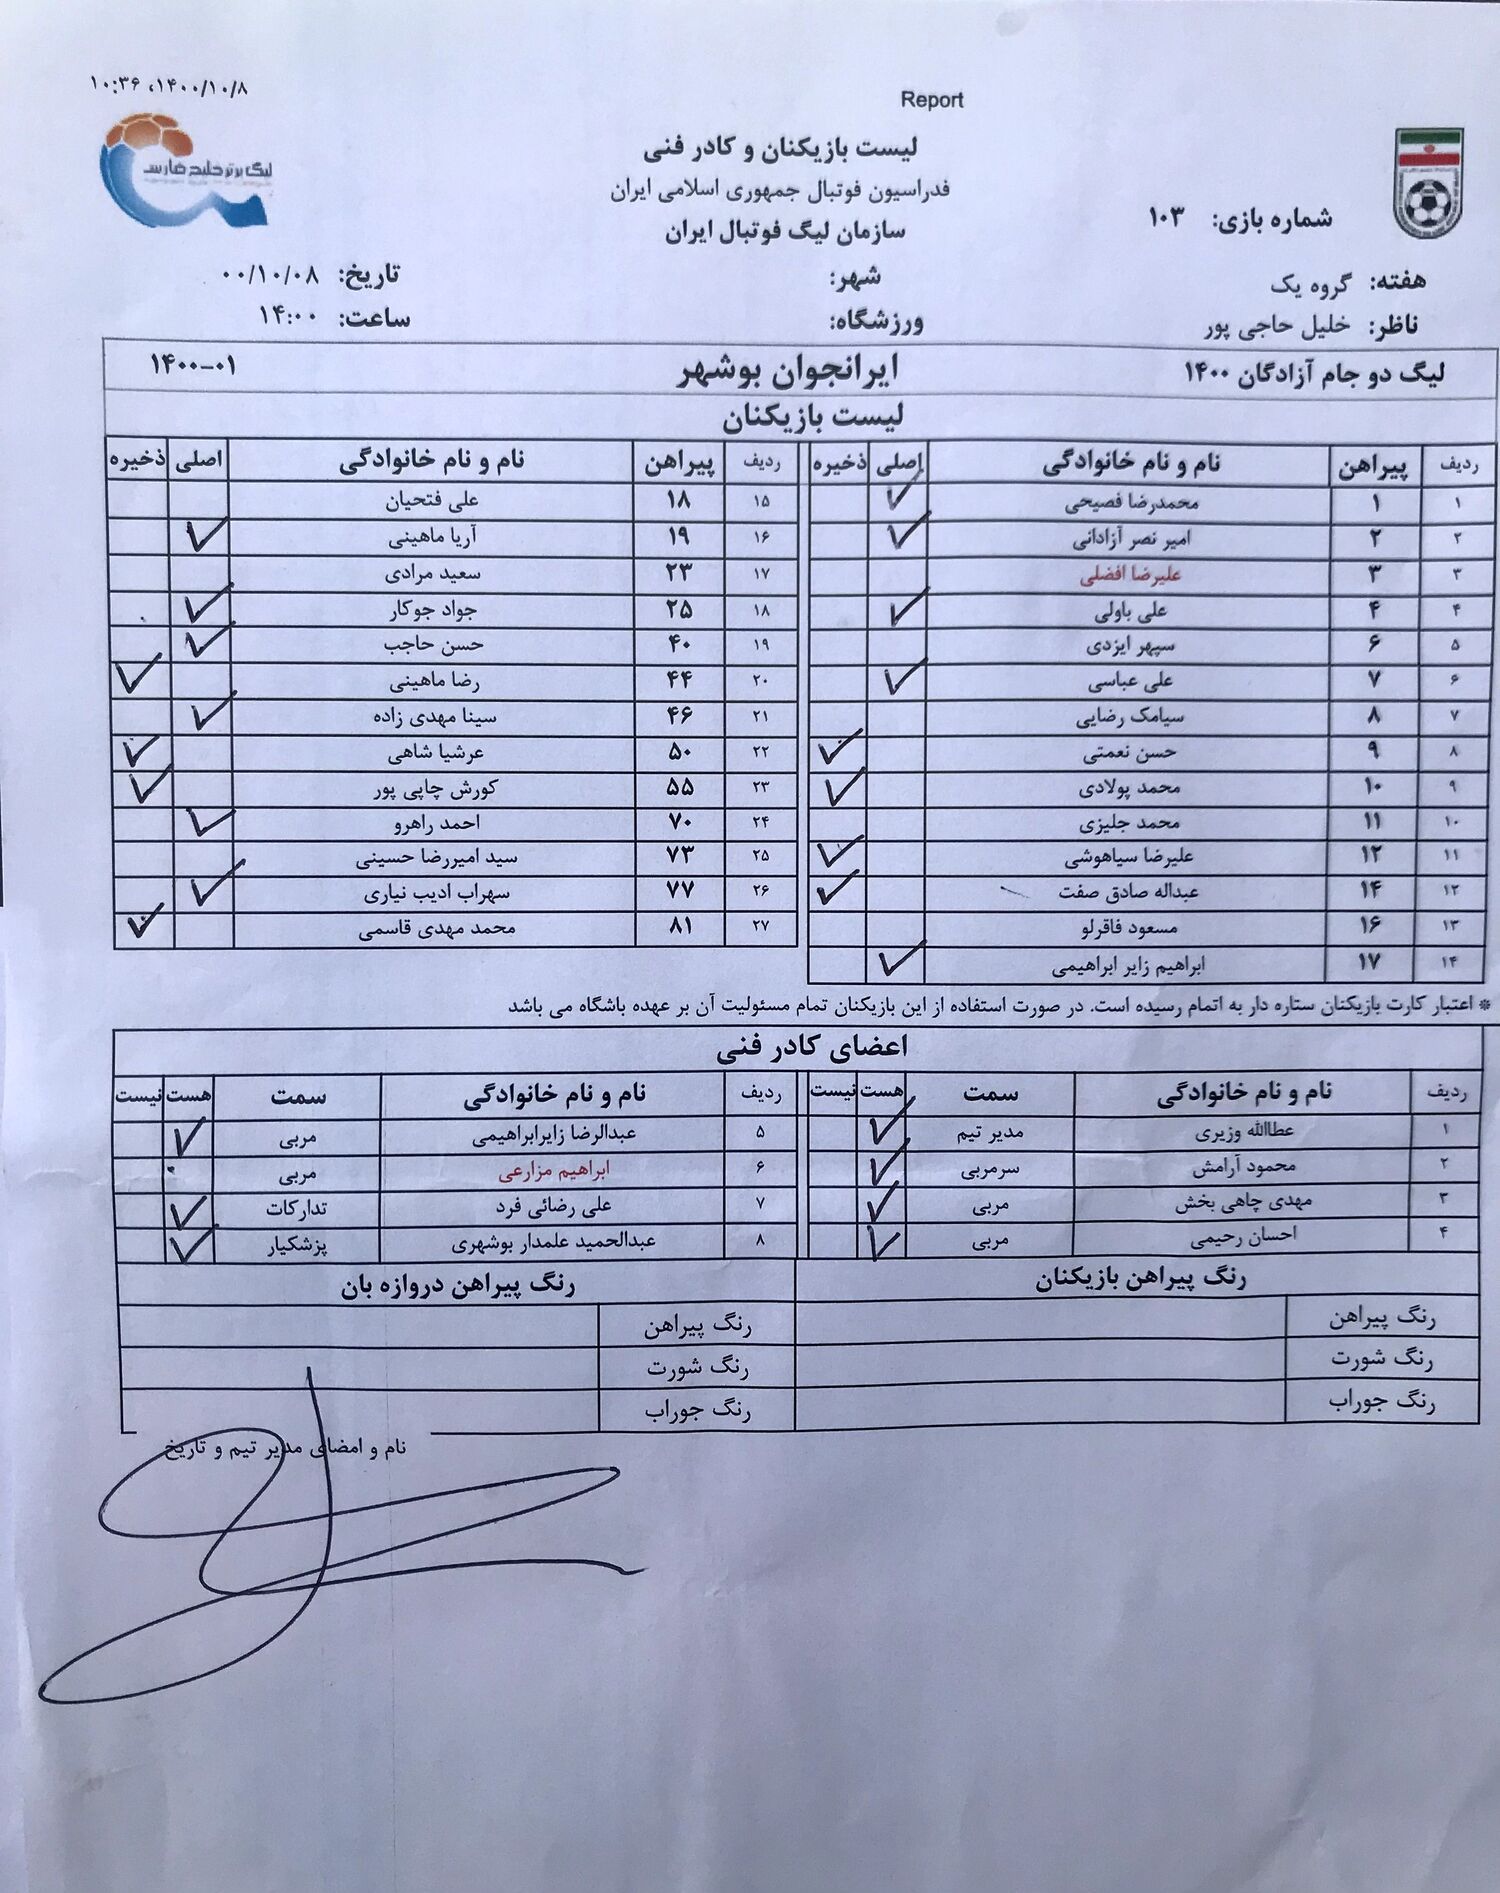 ۱۴۰۰/۱۰/۸، ۱۰:۳۶
Report
لیگ برتر خلیج فارس
لیست بازیکنان و کادر فنی
فدراسیون فوتبال جمهوری اسلامی ایران
سازمان لیگ فوتبال ایران
شماره بازی: ۱۰۳
هفته: گروه یک شهر: تاریخ: ۰۰/۱۰/۰۸
ناظر: خلیل حاجی پور ورزشگاه: ساعت: ۱۴:۰۰
لیگ دو جام آزادگان ۱۴۰۰ ایرانجوان بوشهر ۱۴۰۰-۰۱
لیست بازیکنان
ردیف پیراهن نام و نام خانوادگی اصلی ذخیره ردیف پیراهن نام و نام خانوادگی اصلی ذخیره
۱ ۱ محمدرضا فصیحی ✓ ۱۵ ۱۸ علی فتحیان
۲ ۲ امیر نصر آزادانی ✓ ۱۶ ۱۹ آریا ماهینی ✓
۳ ۳ علیرضا افضلی ۱۷ ۲۳ سعید مرادی
۴ ۴ علی باولی ✓ ۱۸ ۲۵ جواد جوکار ✓
۵ ۶ سپهر ایزدی ۱۹ ۴۰ حسن حاجب ✓
۶ ۷ علی عباسی ✓ ۲۰ ۴۴ رضا ماهینی ✓
۷ ۸ سیامک رضایی ۲۱ ۴۶ سینا مهدی زاده ✓
۸ ۹ حسن نعمتی ✓ ۲۲ ۵۰ عرشیا شاهی ✓
۹ ۱۰ محمد پولادی ✓ ۲۳ ۵۵ کورش چاپی پور ✓
۱۰ ۱۱ محمد جلیزی ۲۴ ۷۰ احمد راهرو ✓
۱۱ ۱۲ علیرضا سیاهوشی ✓ ۲۵ ۷۳ سید امیررضا حسینی
۱۲ ۱۴ عبداله صادق صفت ✓ ۲۶ ۷۷ سهراب ادیب نیاری ✓
۱۳ ۱۶ مسعود فاقرلو ۲۷ ۸۱ محمد مهدی قاسمی ✓
۱۴ ۱۷ ابراهیم زایر ابراهیمی ✓
* اعتبار کارت بازیکنان ستاره دار به اتمام رسیده است. در صورت استفاده از این بازیکنان تمام مسئولیت آن بر عهده باشگاه می باشد
اعضای کادر فنی
ردیف نام و نام خانوادگی سمت هست نیست ردیف نام و نام خانوادگی سمت هست نیست
۱ عطاالله وزیری مدیر تیم ✓ ۵ عبدالرضا زایرابراهیمی مربی ✓
۲ محمود آرامش سرمربی ✓ ۶ ابراهیم مزارعی مربی
۳ مهدی چاهی بخش مربی ✓ ۷ علی رضائی فرد تدارکات ✓
۴ احسان رحیمی مربی ✓ ۸ عبدالحمید علمدار بوشهری پزشکیار ✓
رنگ پیراهن بازیکنان رنگ پیراهن دروازه بان
رنگ پیراهن رنگ پیراهن
رنگ شورت رنگ شورت
رنگ جوراب رنگ جوراب
نام و امضای مدیر تیم و تاریخ